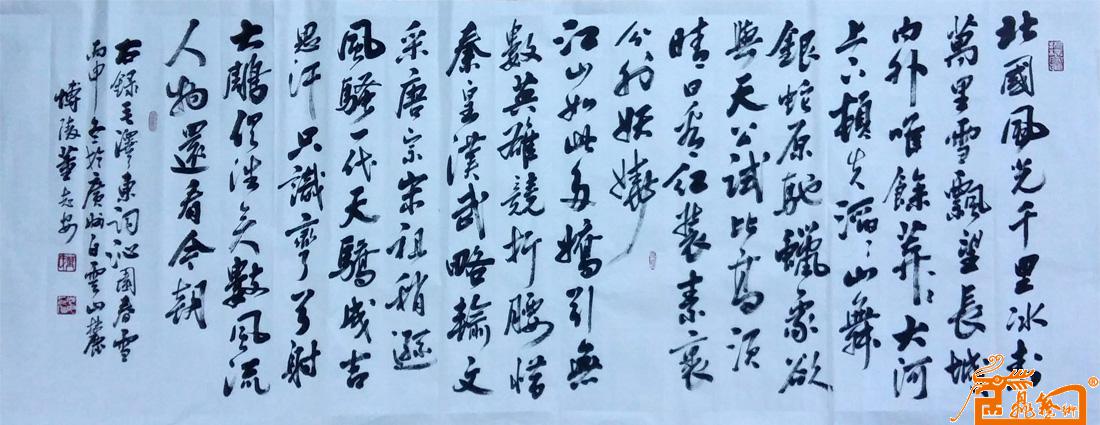 北國風光千里冰封
萬里雪飄望長城
内外唯餘莽〻大河
上下頓失滔〻山舞
銀蛇原馳蠟象欲
與天公試比高須
晴日看紅裝素裹
分外妖嬈
江山如此多嬌引無
數英雄競折腰惜
秦皇漢武略輸文
采唐宗宋祖稍遜
風騷一代天驕成吉
思汗只識彎弓射
大雕俱往矣數風流
人物還看今朝
右錄毛澤東詞沁園春雪
丙申冬於廣州白雲山麓
博陵董志安